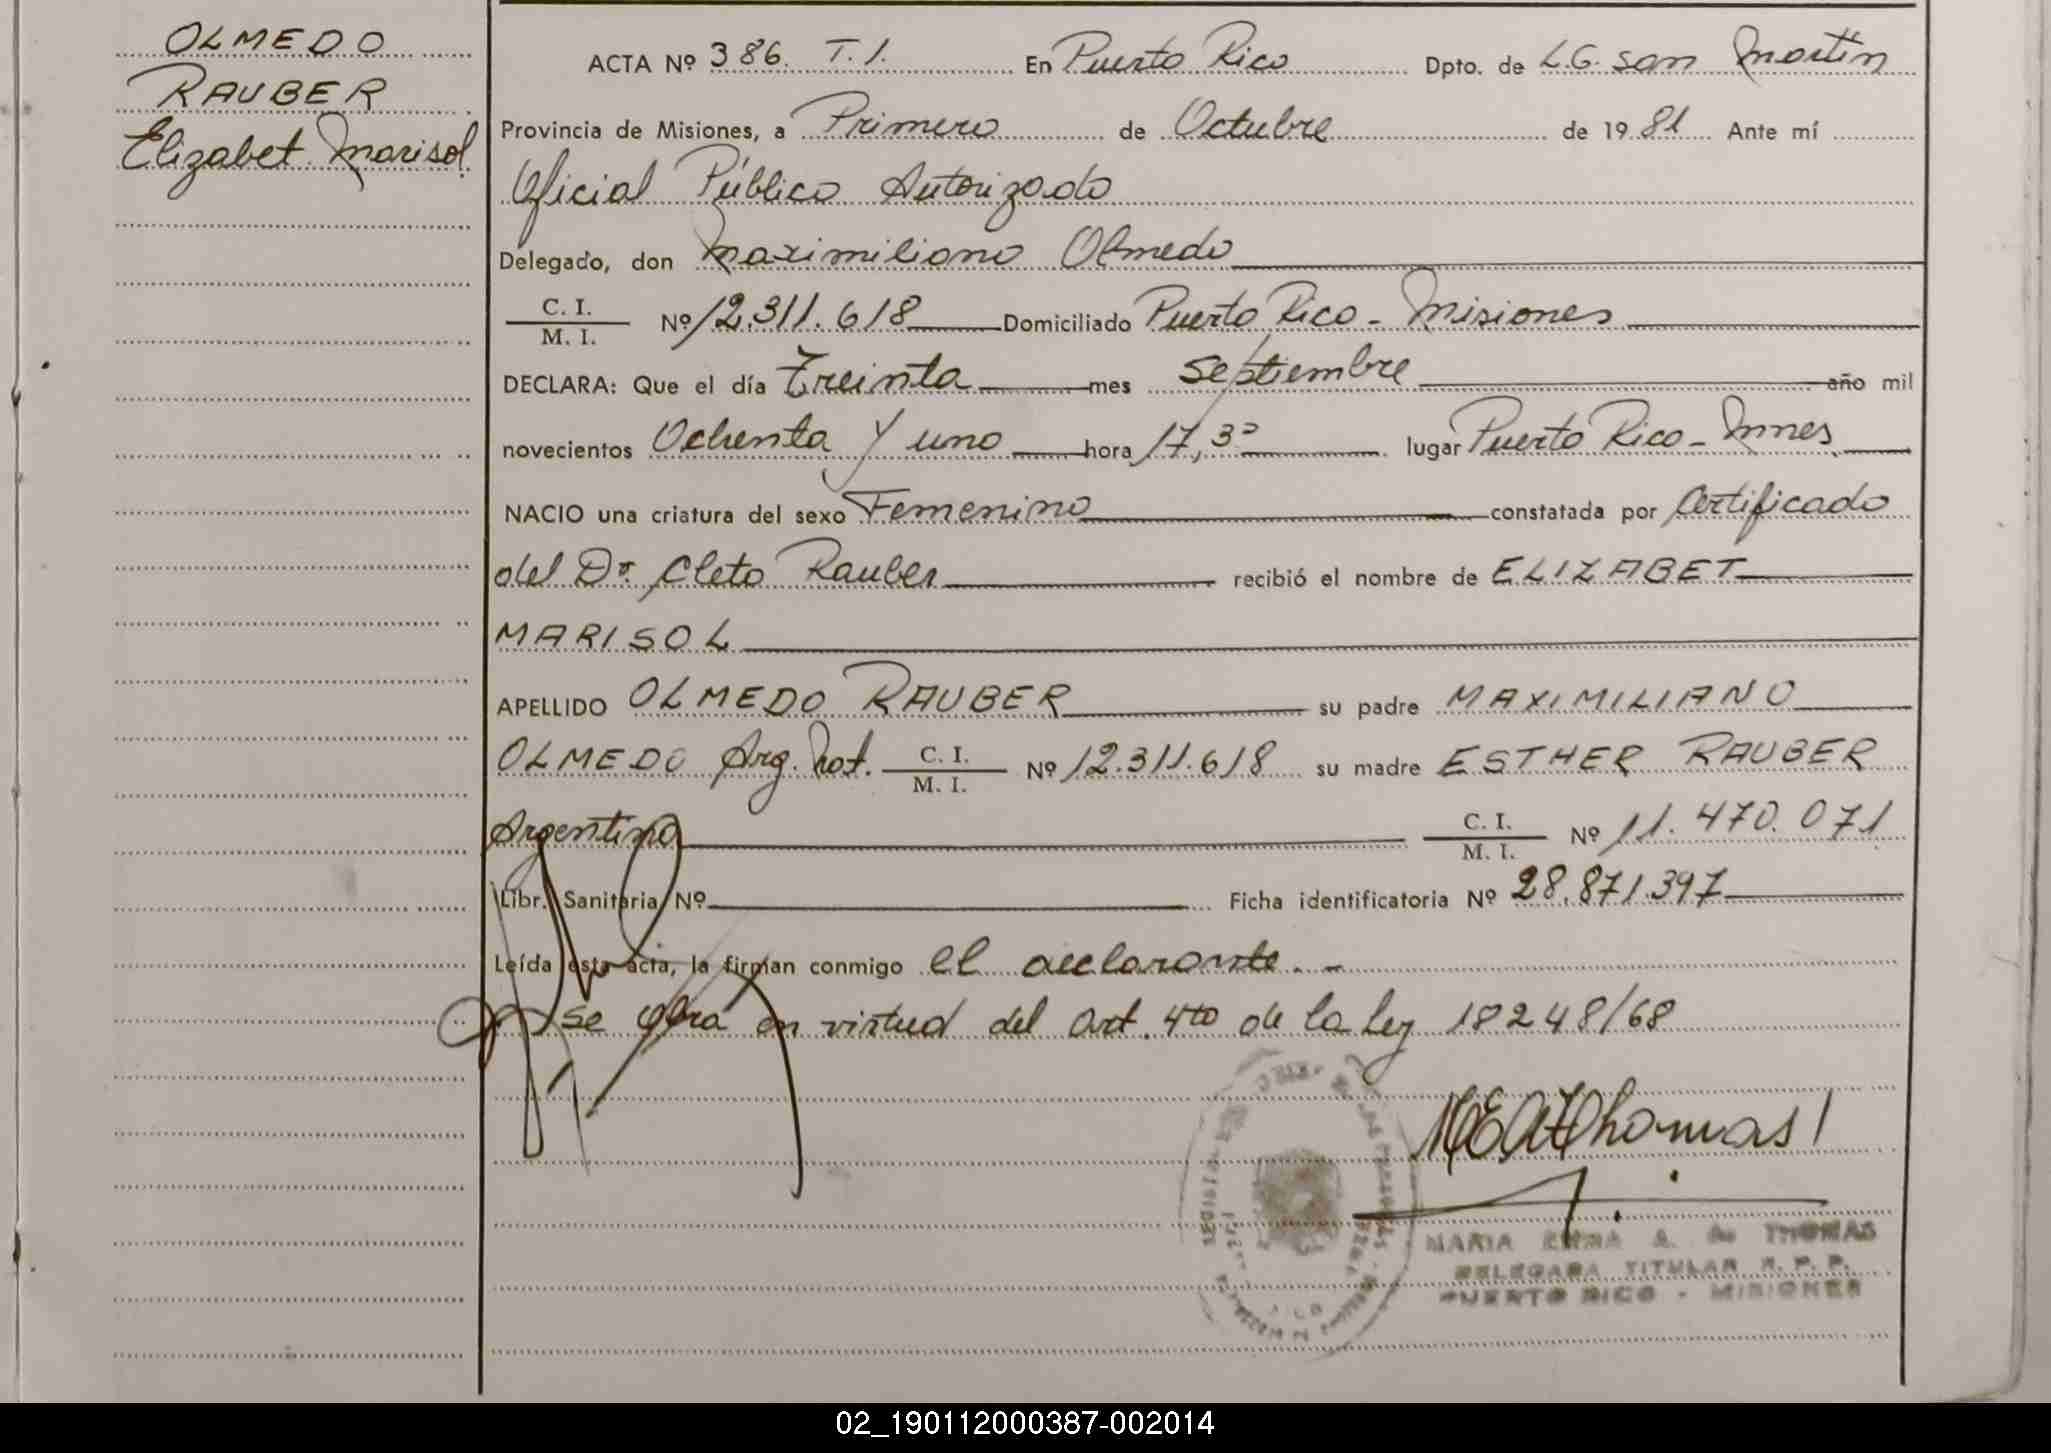 OLMEDO
RAUBER
Elizabet Marisol
ACTA Nº 386. T.I. En Puerto Rico Dpto. de L.G. San Martín
Provincia de Misiones, a Primero de Octubre de 1981 Ante mí
Oficial Público Autorizado
Delegado, don Maximiliano Olmedo
C. I.
M. I.
Nº 12.311.618 Domiciliado Puerto Rico - Misiones
DECLARA: Que el día Treinta mes septiembre año mil
novecientos Ochenta y uno hora 17,30 lugar Puerto Rico - Mnes
NACIO una criatura del sexo Femenino constatada por Certificado
del Dr. Cleto Rauber recibió el nombre de ELIZABET
MARISOL
APELLIDO OLMEDO RAUBER su padre MAXIMILIANO
OLMEDO Arg. Nat. C. I. M. I. Nº 12.311.618 su madre ESTHER RAUBER
Argentina C. I. M. I. Nº 11.470.071
Libr. Sanitaria Nº Ficha identificatoria Nº 28.871.397
Leída esta acta, la firman conmigo el declarante. -
se obra en virtud del art. 4to de la Ley 18248/68
MEAThomas
MARIA EMMA A. de THOMAS
DELEGADA TITULAR R. P. P.
PUERTO RICO - MISIONES
02_190112000387-002014